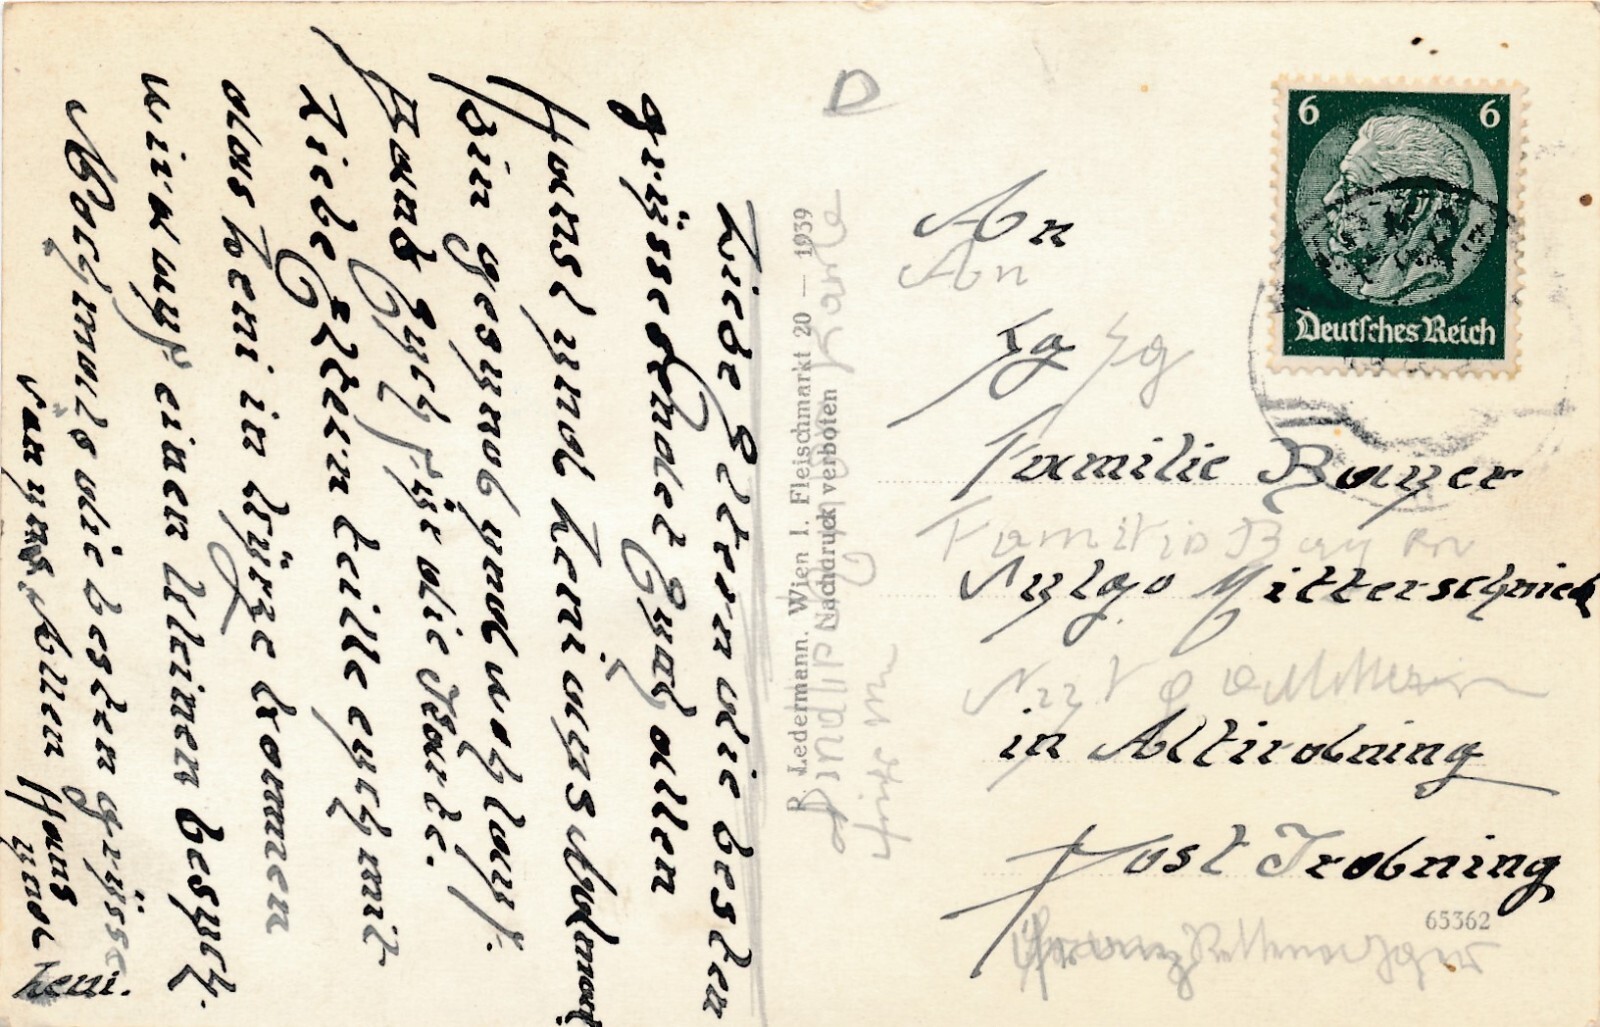 Liebe Eltern die besten
grüsse sendet Euch allen
Hansl und Heni aus
Bin gesund und wohlauf.
Dank Euch für die Karte.
Liebe Eltern teile euch mit
das Heni in kürze kommen
wird auf einen kleinen besuch.
Nochmals die besten grüsse
von uns Allen Hans
und
Heni.
P. Ledermann. Wien I. Fleischmarkt 20 — 1939
Nachdruck verboten
D
6 6
Deutsches Reich
An
An
Familie Bayer
in Altirdning
Post Irdning
65362